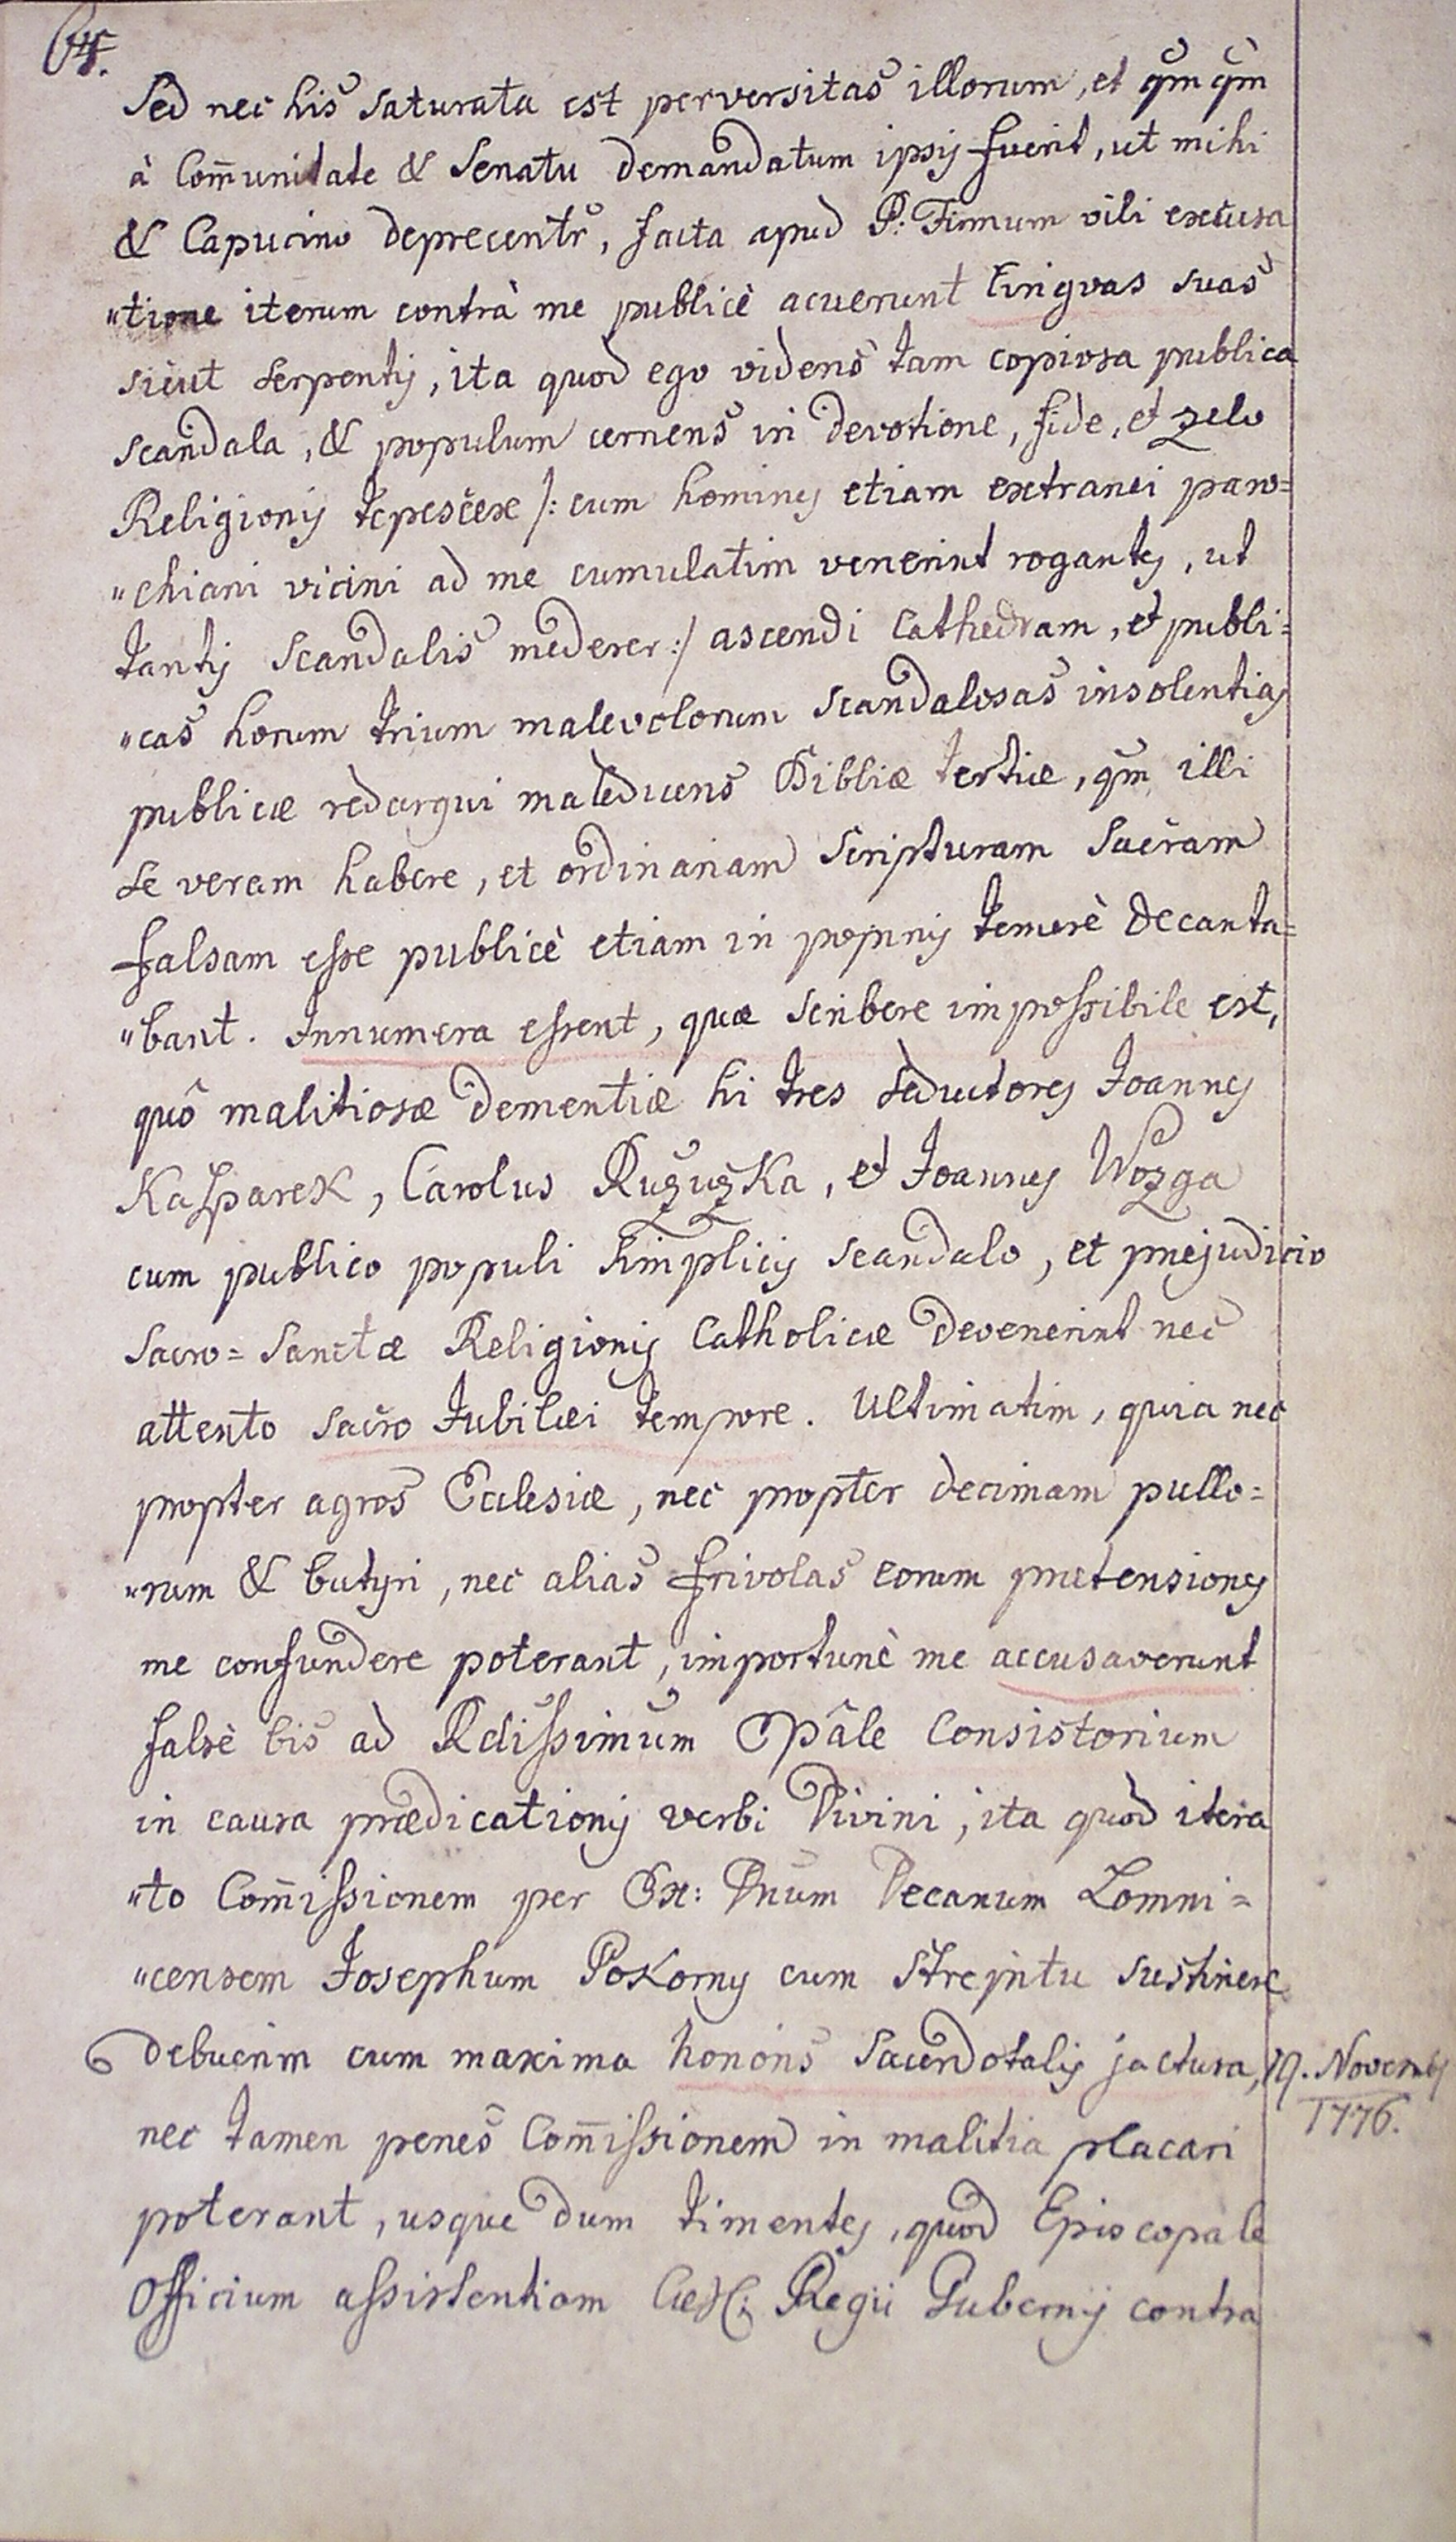 64.
Sed nec his saturata est perversitas illorum, et qm̃ qm̃
à Com̄unitate & Senatu demandatum ipsis fuerit, ut mihi
& Capucino deprecentr, facta apud P: Firmum vili excusa
"tione iterum contrà me publicè acuerunt linguas suas
sicut serpentis, ita quod ego videns tam copiosa publica
scandala, & populum cernens in devotione, fide, et zelo
Religionis tepescere /: cum homines etiam extranei paro=
"chiani vicini ad me cumulatim venerint rogantes, ut
tantis scandalis mederer :/ ascendi Cathedram, et publi=
"cas horum trium malevolorum scandalosas insolentias
publicæ redargui maledicens Bibliæ tertiæ, qm̃ illi
se veram habere, et ordinariam Scripturam Sacram
falsam esse publicè etiam in popinis temerè decanta=
"bant. Innumera essent, quæ scribere impossibile est,
quô malitiosæ dementiæ hi tres seductores Joannes
Kasparek, Carolus Ružužka, et Joannes Wozga
cum publico populi simplicis scandalo, et præjudicio
sacro=sanctæ Religionis Catholicæ devenerint nec
attento sacro Jubilæi tempore. Ultimatim, quia nec
propter agros Ecclesiæ, nec propter decimam pullo=
"rum & butyri, nec alias frivolas eorum prætensiones
me confundere poterant, importunè me accusaverunt
falsè bis ad Rdissimum Eppâle Consistorium
in causa prædicationis verbi Divini, ita quod itera
"to Com̄issionem per Ex: Dnum Decanum Lomni=
"censem Josephum Pokorny cum strepitu sustinere
debuerim cum maxima honoris Sacerdotalis jactura,
19. Novembris
1776.
nec tamen penes Com̄issionem in malitia placari
poterant, usque dum timentes, quod Episcopale
Officium assistentiam Cæs: Regii Gubernij contra